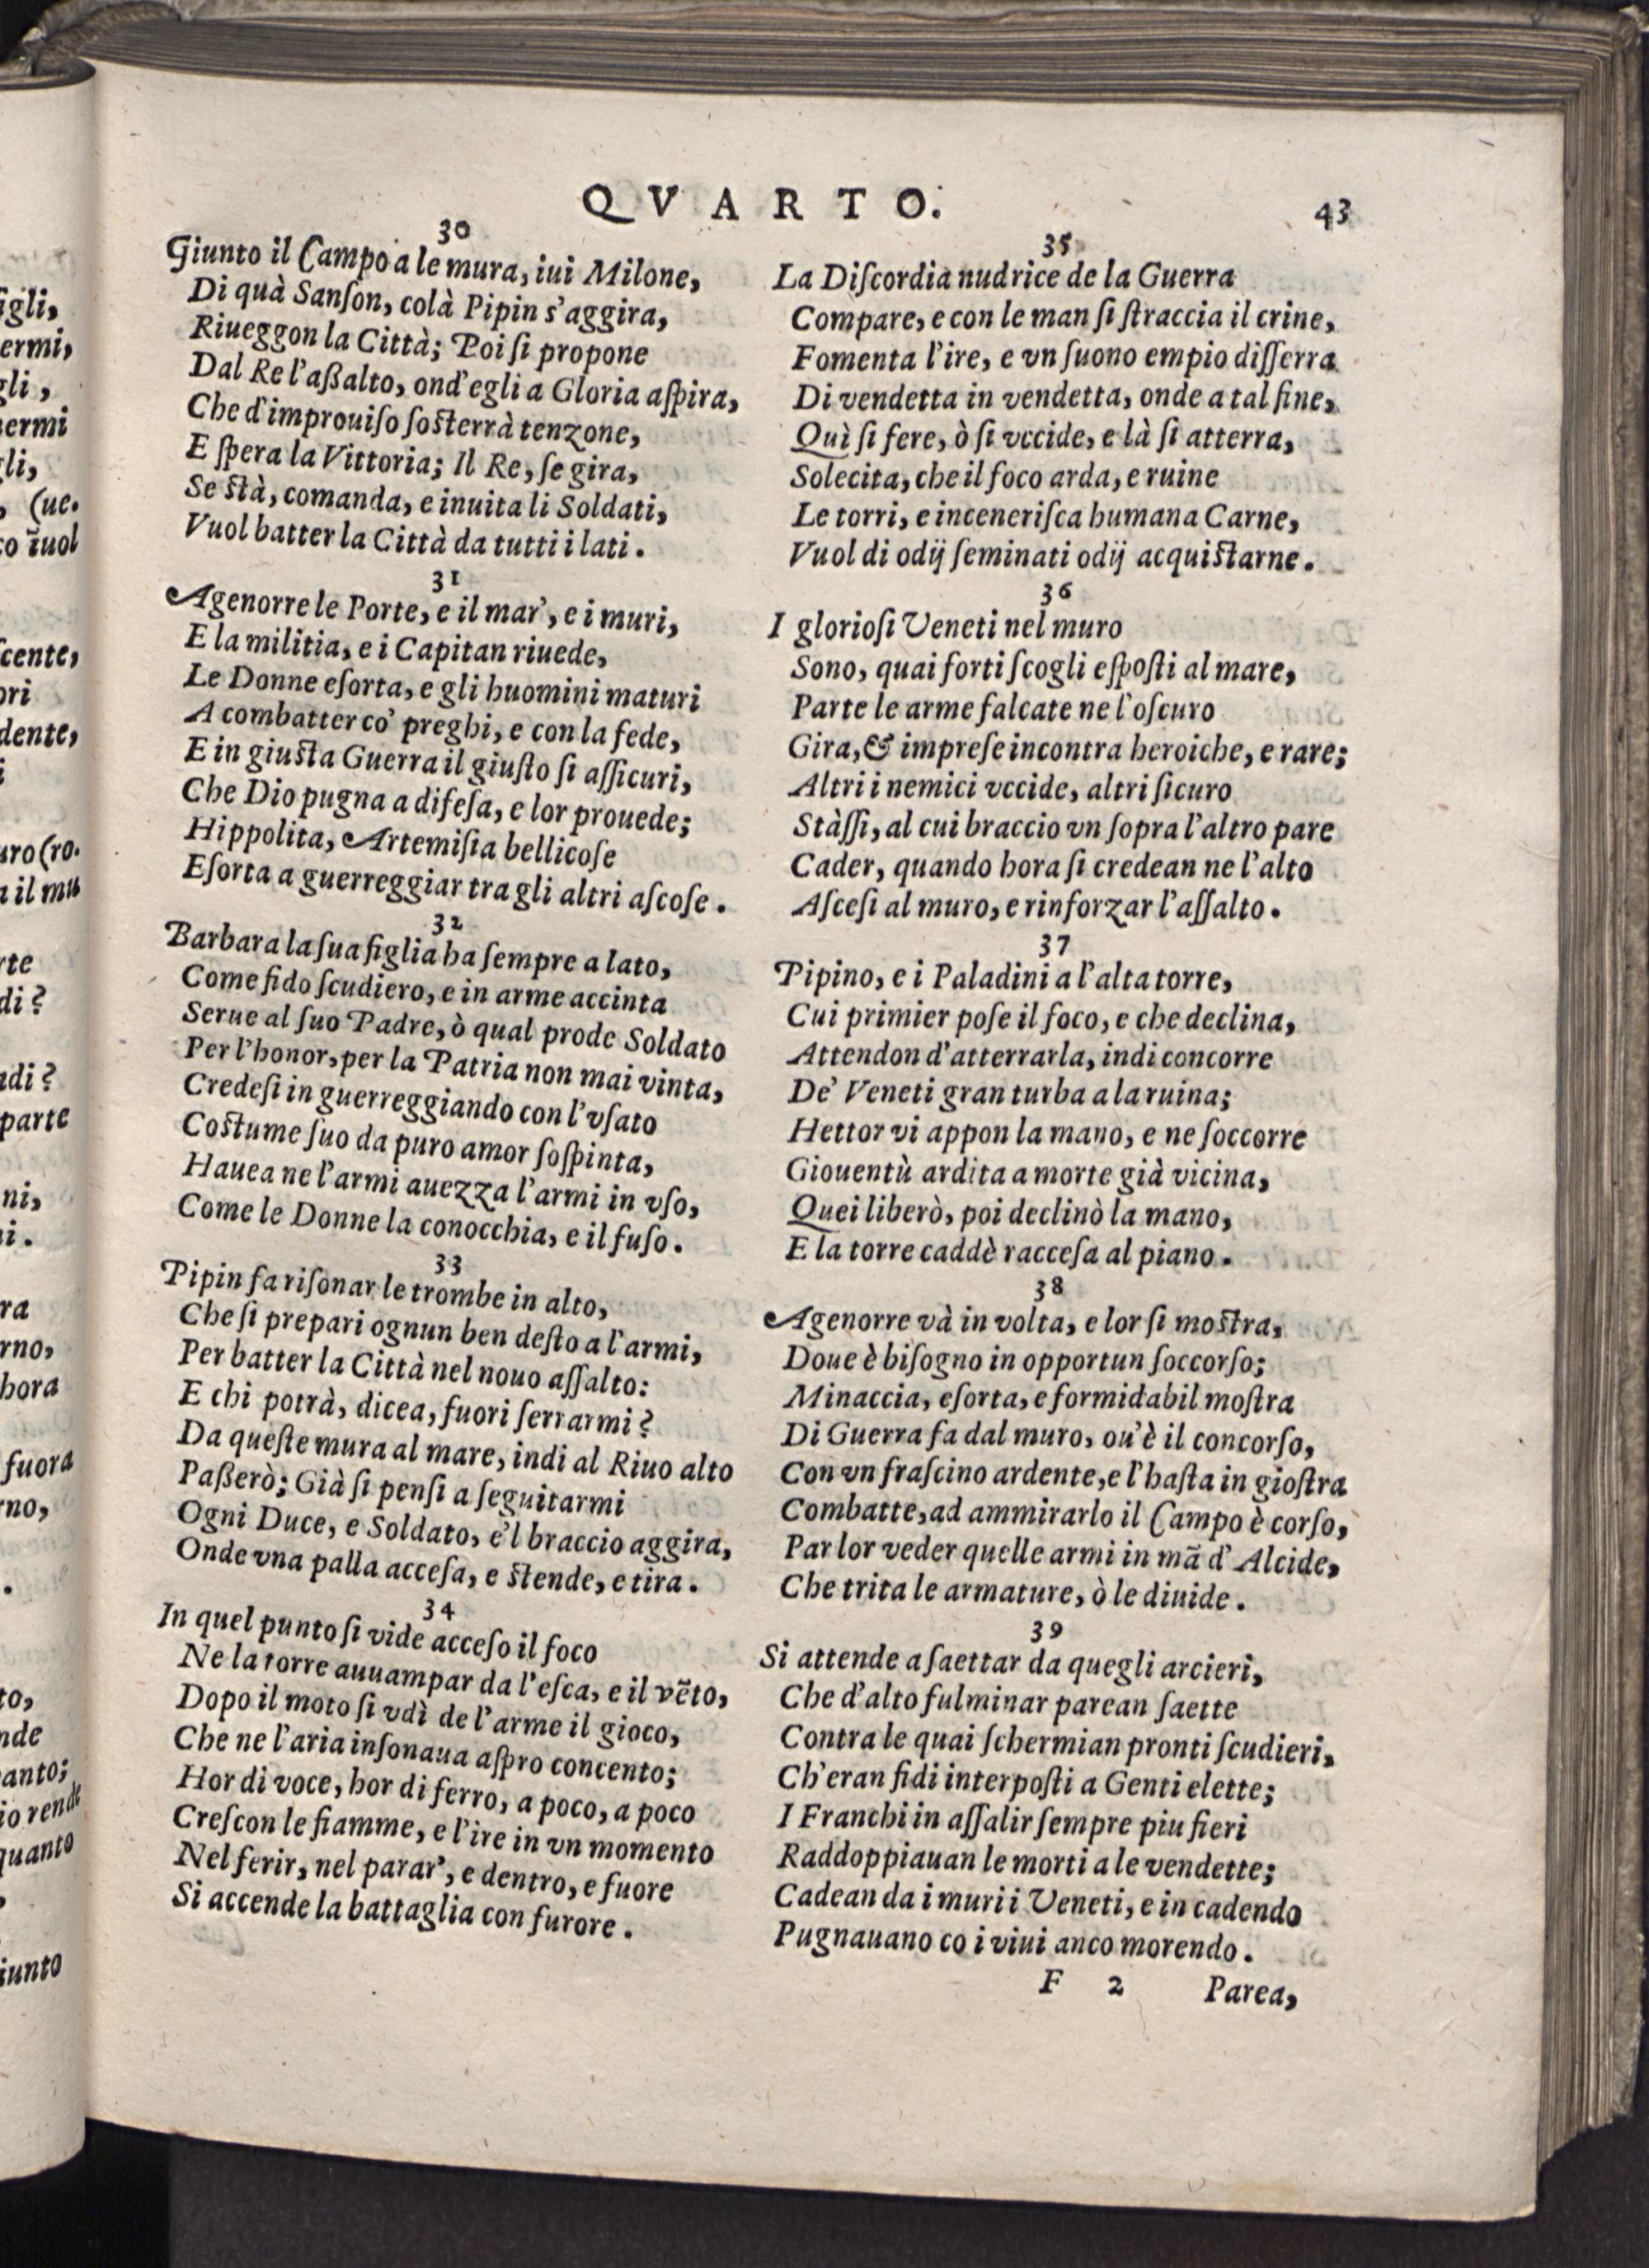 QVARTO.
43
30
Giunto il Campo a le mura, iui Milone,
Di quà Sanſon, colà Pipin s'aggira,
Riueggon la Città; Poi ſi propone
Dal Re l'aßalto, ond'egli a Gloria aſpira,
Che d'improuiſo ſosterrà tenzone,
E ſpera la Vittoria; Il Re, ſe gira,
Se stà, comanda, e inuita li Soldati,
Vuol batter la Città da tutti i lati.
31
Agenorre le Porte, e il mar', e i muri,
E la militia, e i Capitan riuede,
Le Donne eſorta, e gli huomini maturi
A combatter co' preghi, e con la fede,
E in giusta Guerra il giuſto ſi aſſicuri,
Che Dio pugna a difeſa, e lor prouede;
Hippolita, Artemiſia bellicoſe
Eſorta a guerreggiar tra gli altri aſcoſe.
32
Barbara la ſua figlia ha ſempre a lato,
Come fido ſcudiero, e in arme accinta
Serue al ſuo Padre, ò qual prode Soldato
Per l'honor, per la Patria non mai vinta,
Credeſi in guerreggiando con l'vſato
Costume ſuo da puro amor ſoſpinta,
Hauea ne l'armi auezza l'armi in vſo,
Come le Donne la conocchia, e il fuſo.
33
Pipin fa riſonar le trombe in alto,
Che ſi prepari ognun ben deſto a l'armi,
Per batter la Città nel nouo aſſalto:
E chi potrà, dicea, fuori ſerrarmi?
Da queſte mura al mare, indi al Riuo alto
Paßerò; Già ſi penſi a ſeguitarmi
Ogni Duce, e Soldato, e'l braccio aggira,
Onde vna palla acceſa, e stende, e tira.
34
In quel punto ſi vide acceſo il foco
Ne la torre auuampar da l'eſca, e il vẽto,
Dopo il moto ſi vdì de l'arme il gioco,
Che ne l'aria inſonaua aſpro concento;
Hor di voce, hor di ferro, a poco, a poco
Creſcon le fiamme, e l'ire in vn momento
Nel ferir, nel parar', e dentro, e fuore
Si accende la battaglia con furore.
35
La Diſcordia nudrice de la Guerra
Compare, e con le man ſi ſtraccia il crine,
Fomenta l'ire, e vn ſuono empio diſſerra
Di vendetta in vendetta, onde a tal fine,
Quì ſi fere, ò ſi vccide, e là ſi atterra,
Solecita, che il foco arda, e ruine
Le torri, e inceneriſca humana Carne,
Vuol di odij ſeminati odij acquistarne.
36
I glorioſi Veneti nel muro
Sono, quai forti ſcogli eſpoſti al mare,
Parte le arme falcate ne l'oſcuro
Gira, & impreſe incontra heroiche, e rare;
Altri i nemici vccide, altri ſicuro
Stàſſi, al cui braccio vn ſopra l'altro pare
Cader, quando hora ſi credean ne l'alto
Aſceſi al muro, e rinforzar l'aſſalto.
37
Pipino, e i Paladini a l'alta torre,
Cui primier poſe il foco, e che declina,
Attendon d'atterrarla, indi concorre
De' Veneti gran turba a la ruina;
Hettor vi appon la mano, e ne ſoccorre
Giouentù ardita a morte già vicina,
Quei liberò, poi declinò la mano,
E la torre caddè racceſa al piano.
38
Agenorre và in volta, e lor ſi mostra,
Doue è biſogno in opportun ſoccorſo;
Minaccia, eſorta, e formidabil moſtra
Di Guerra fa dal muro, ou'è il concorſo,
Con vn fraſcino ardente, e l'haſta in gioſtra
Combatte, ad ammirarlo il Campo è corſo,
Par lor veder quelle armi in mã d'Alcide,
Che trita le armature, ò le diuide.
39
Si attende a ſaettar da quegli arcieri,
Che d'alto fulminar parean ſaette
Contra le quai ſchermian pronti ſcudieri,
Ch'eran fidi interpoſti a Genti elette;
I Franchi in aſſalir ſempre piu fieri
Raddoppiauan le morti a le vendette;
Cadean da i muri i Veneti, e in cadendo
Pugnauano co i viui anco morendo.
F 2 Parea,